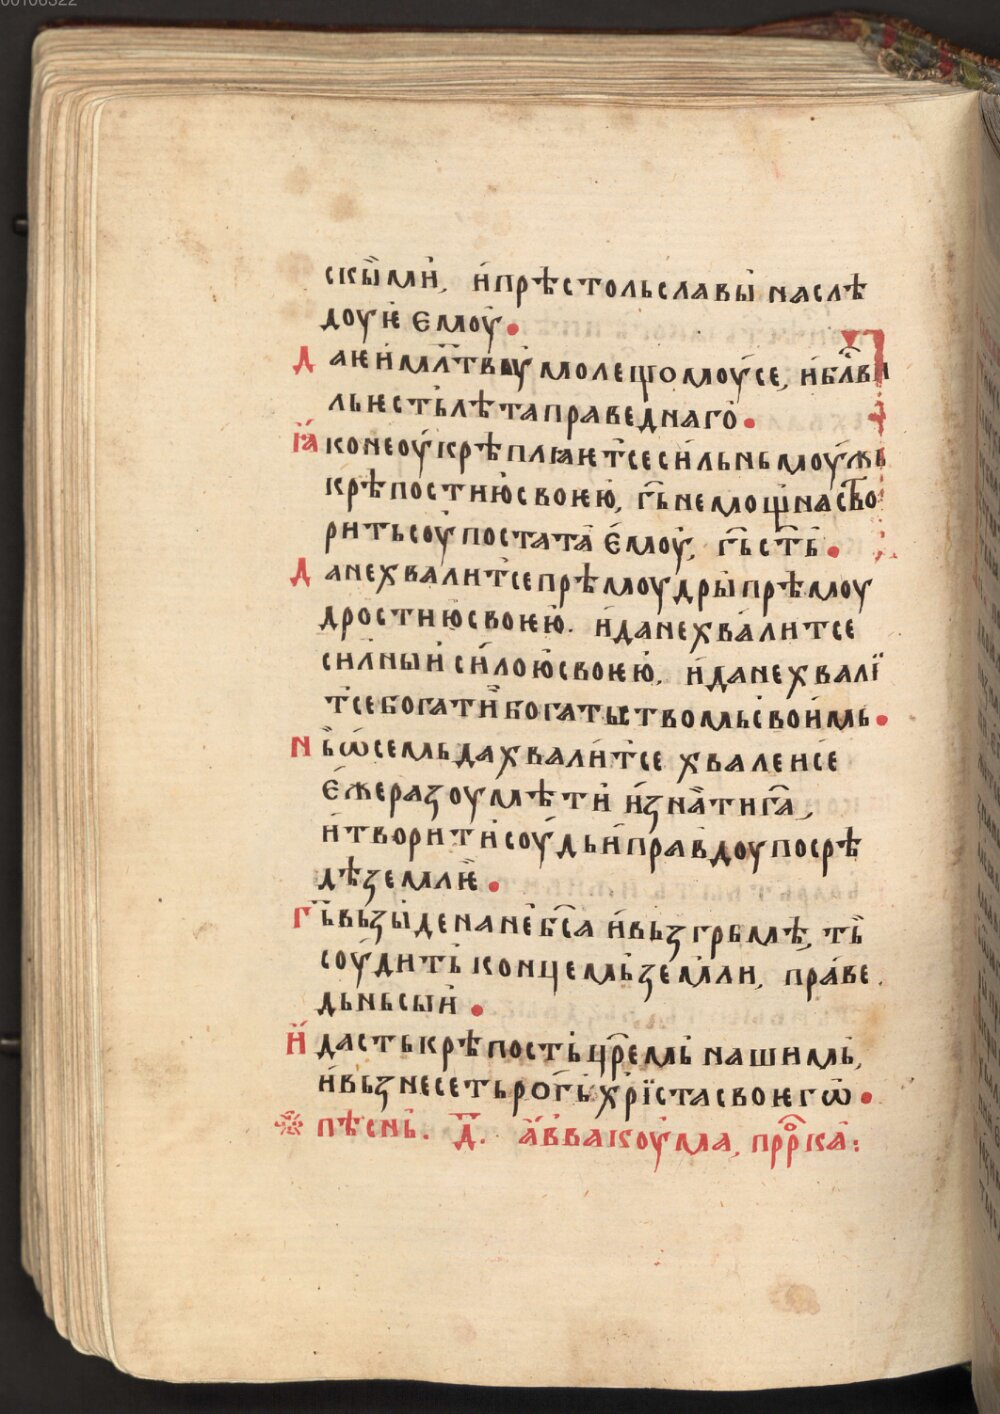 00108322
скы̏ми̇, и҆прѣстольславы̇ наслѣ
доуѥ҆ ѥмоу̇.
Даѥ҆и҆мл҃твоу҆ молещо моу҆се, и҆бл҃ви
льѥсть҆лѣтаправеднаго҆.
Ꙗ҆конеоу҆крѣплꙗѥтсеси́льньмоу́жь
крѣпостию҆своѥю҆, гь҃немощ҆насⷮво
ритьсоу҆постата҆ є҆моу҆, гь҃ст҃ь.
Данехвалитсепрѣмоудры҆прѣмоу
дростию҆своѥю҆. и҆данехва́литсе
силныи҆си́лою҆своѥю҆, и҆данехвалї
тсебогати҆богатьствомьсвои҆мь.
Нь҆ѡ҆семьдахвали́тсе хвалеисе
є҆жеразоумѣти҆ и҆зна̏тига҃,
и҆творити҆соу́дьи҆правдоупосрѣ
дѣземлѥ҆.
Гь҃вьзы́денане́бса҃ и҆вьзгрьмѣ, ть҆
соу́дить҆концемь҆земли, пра́ве
дьньсыи҆.
И҆дастькрѣпость҆цр҃емь҆ нашимь,
и҆вьзнесетьрогь҆хрїстасвоѥгѡ҆.
пѣснь҆. д҃. а҆ввакоу́ма, прⷪ҇рка҆: